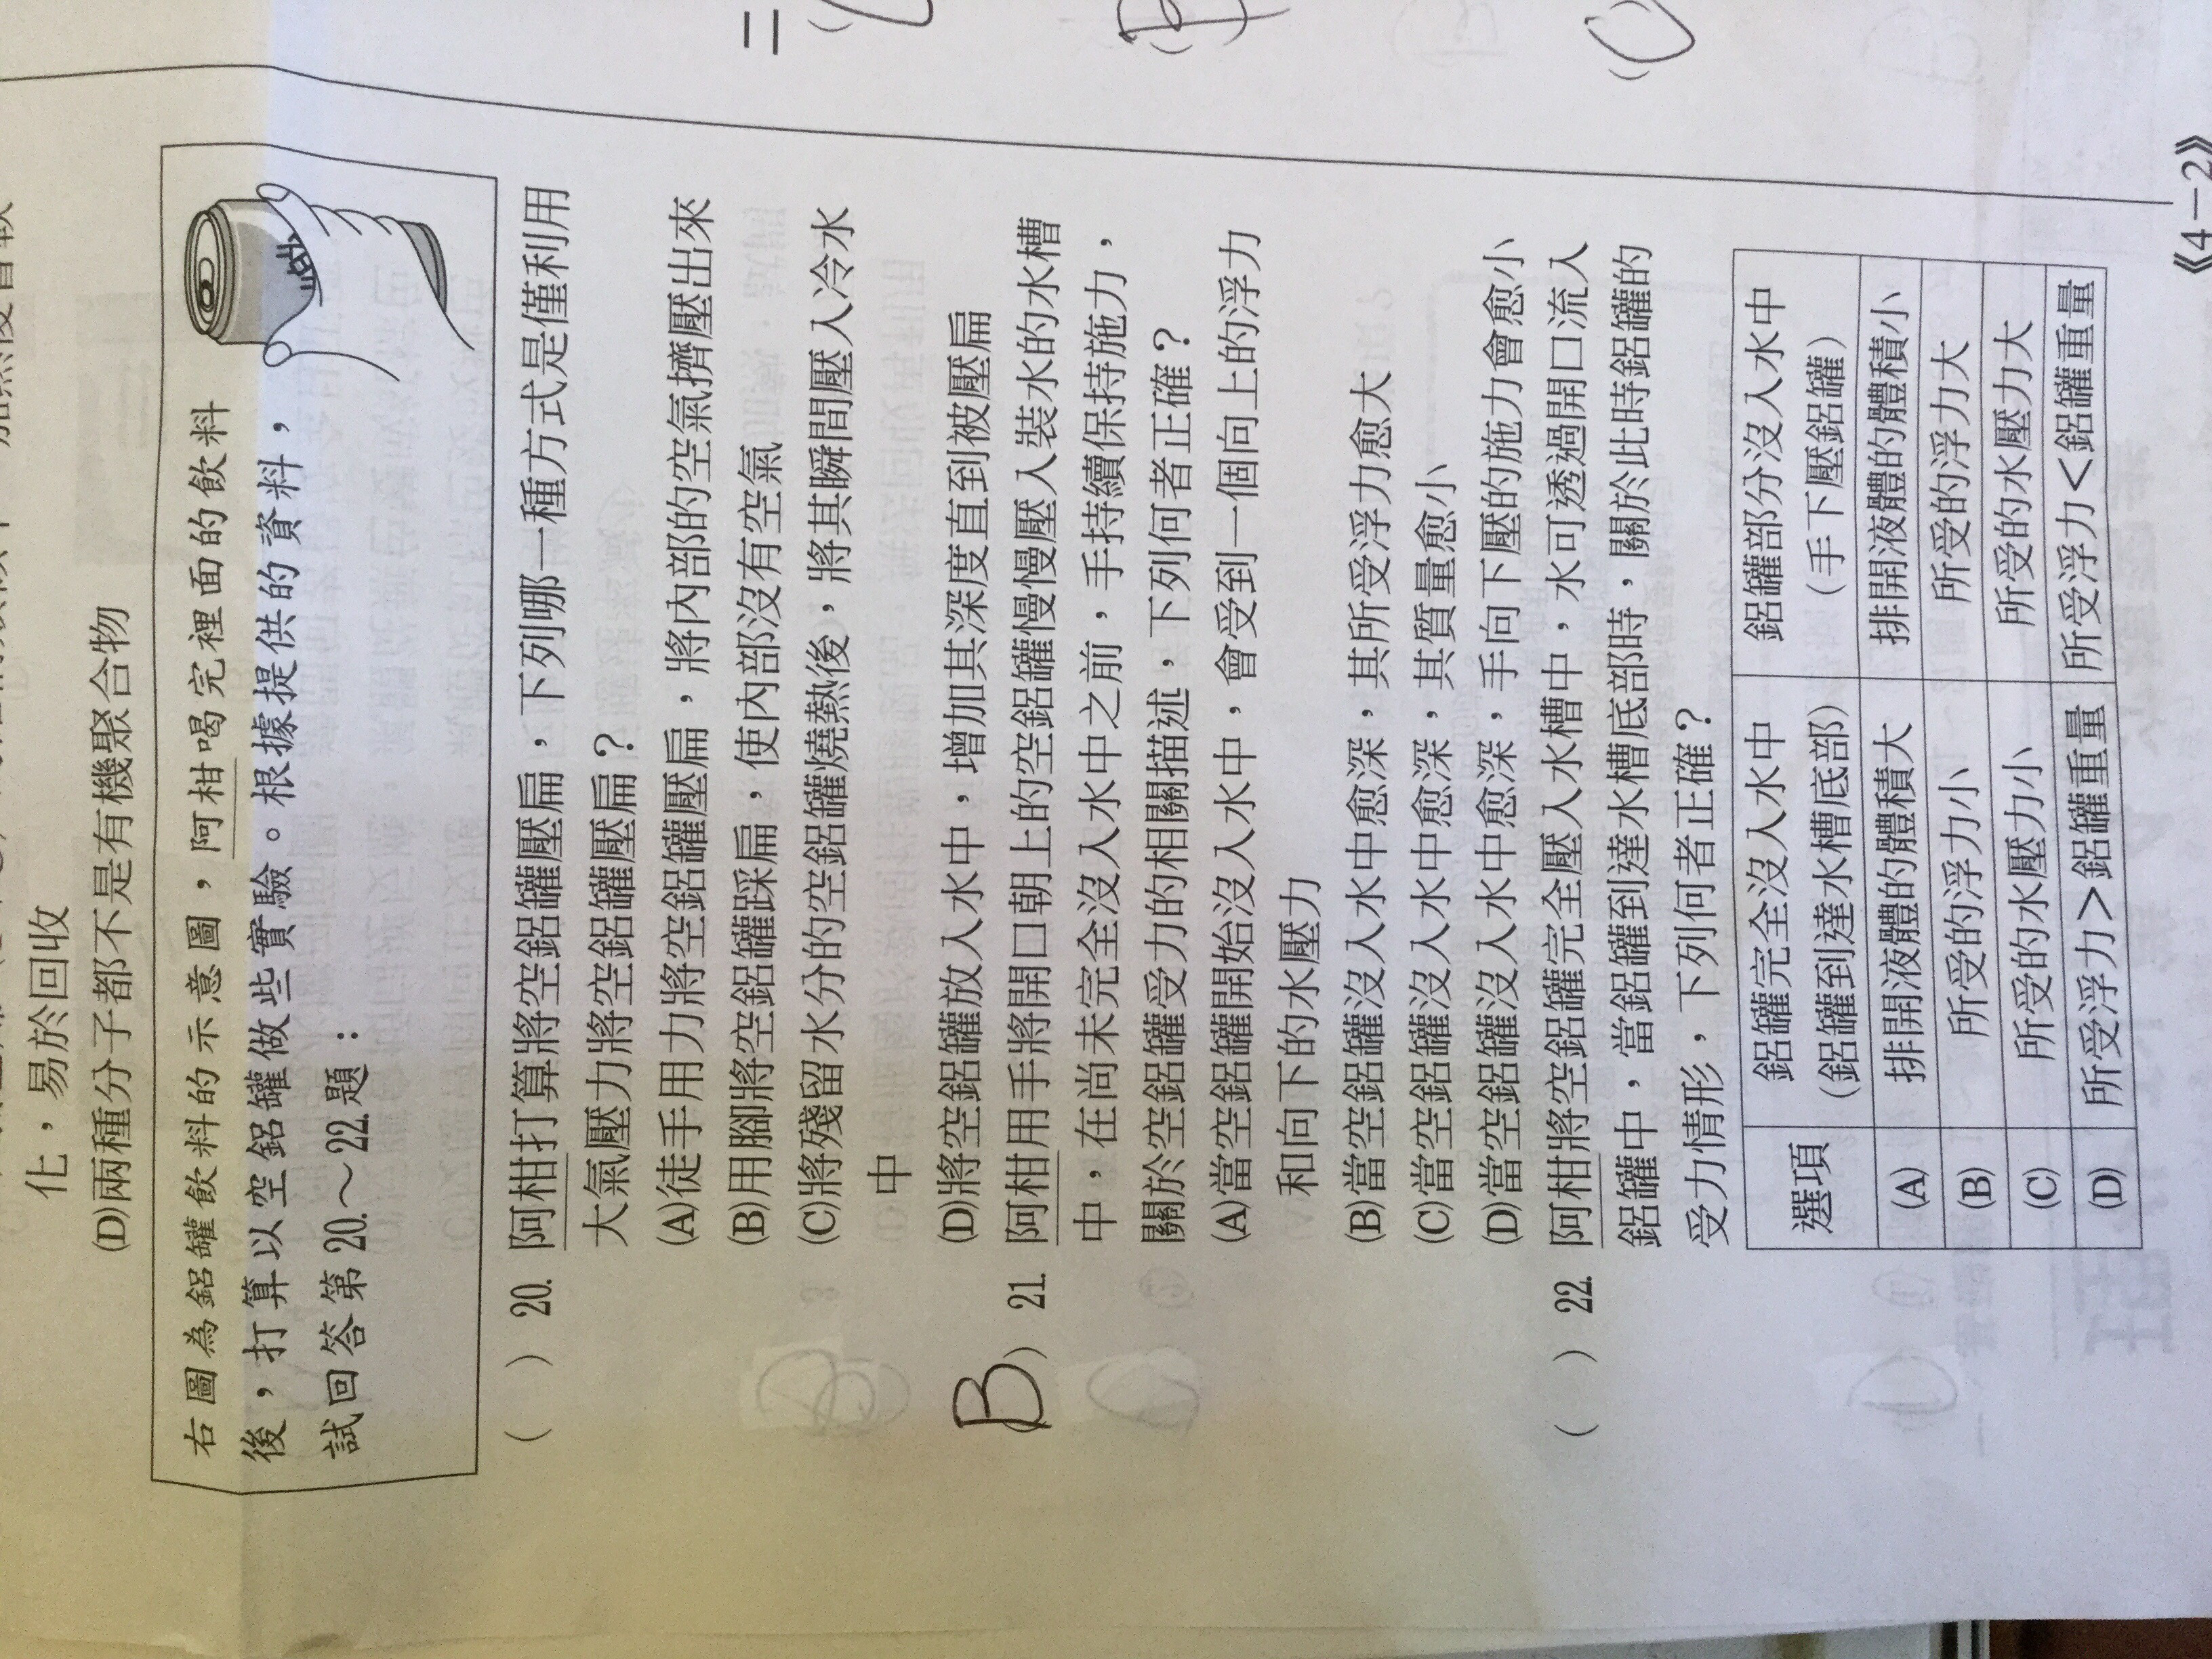 化，易於回收
(D)兩種分子都不是有機聚合物
右圖為鋁罐飲料的示意圖，阿柑喝完裡面的飲料
後，打算以空鋁罐做些實驗。根據提供的資料，
試回答第20.～22.題：
(　) 20. 阿柑打算將空鋁罐壓扁，下列哪一種方式是僅利用
大氣壓力將空鋁罐壓扁？
(A)徒手用力將空鋁罐壓扁，將內部的空氣擠壓出來
(B)用腳將空鋁罐踩扁，使內部沒有空氣
(C)將殘留水分的空鋁罐燒熱後，將其瞬間壓入冷水
中
(D)將空鋁罐放入水中，增加其深度直到被壓扁
(B) 21. 阿柑用手將開口朝上的空鋁罐慢慢壓入裝水的水槽
中，在尚未完全沒入水中之前，手持續保持施力，
關於空鋁罐受力的相關描述，下列何者正確？
(A)當空鋁罐開始沒入水中，會受到一個向上的浮力
和向下的水壓力
(B)當空鋁罐沒入水中愈深，其所受浮力愈大
(C)當空鋁罐沒入水中愈深，其質量愈小
(D)當空鋁罐沒入水中愈深，手向下壓的施力會愈小
(　) 22. 阿柑將空鋁罐完全壓入水槽中，水可透過開口流入
鋁罐中，當鋁罐到達水槽底部時，關於此時鋁罐的
受力情形，下列何者正確？
選項 鋁罐完全沒入水中（鋁罐到達水槽底部） 鋁罐部分沒入水中（手下壓鋁罐）
(A) 排開液體的體積大 排開液體的體積小
(B) 所受的浮力小 所受的浮力大
(C) 所受的水壓力小 所受的水壓力大
(D) 所受浮力＞鋁罐重量 所受浮力＜鋁罐重量
《4－2》